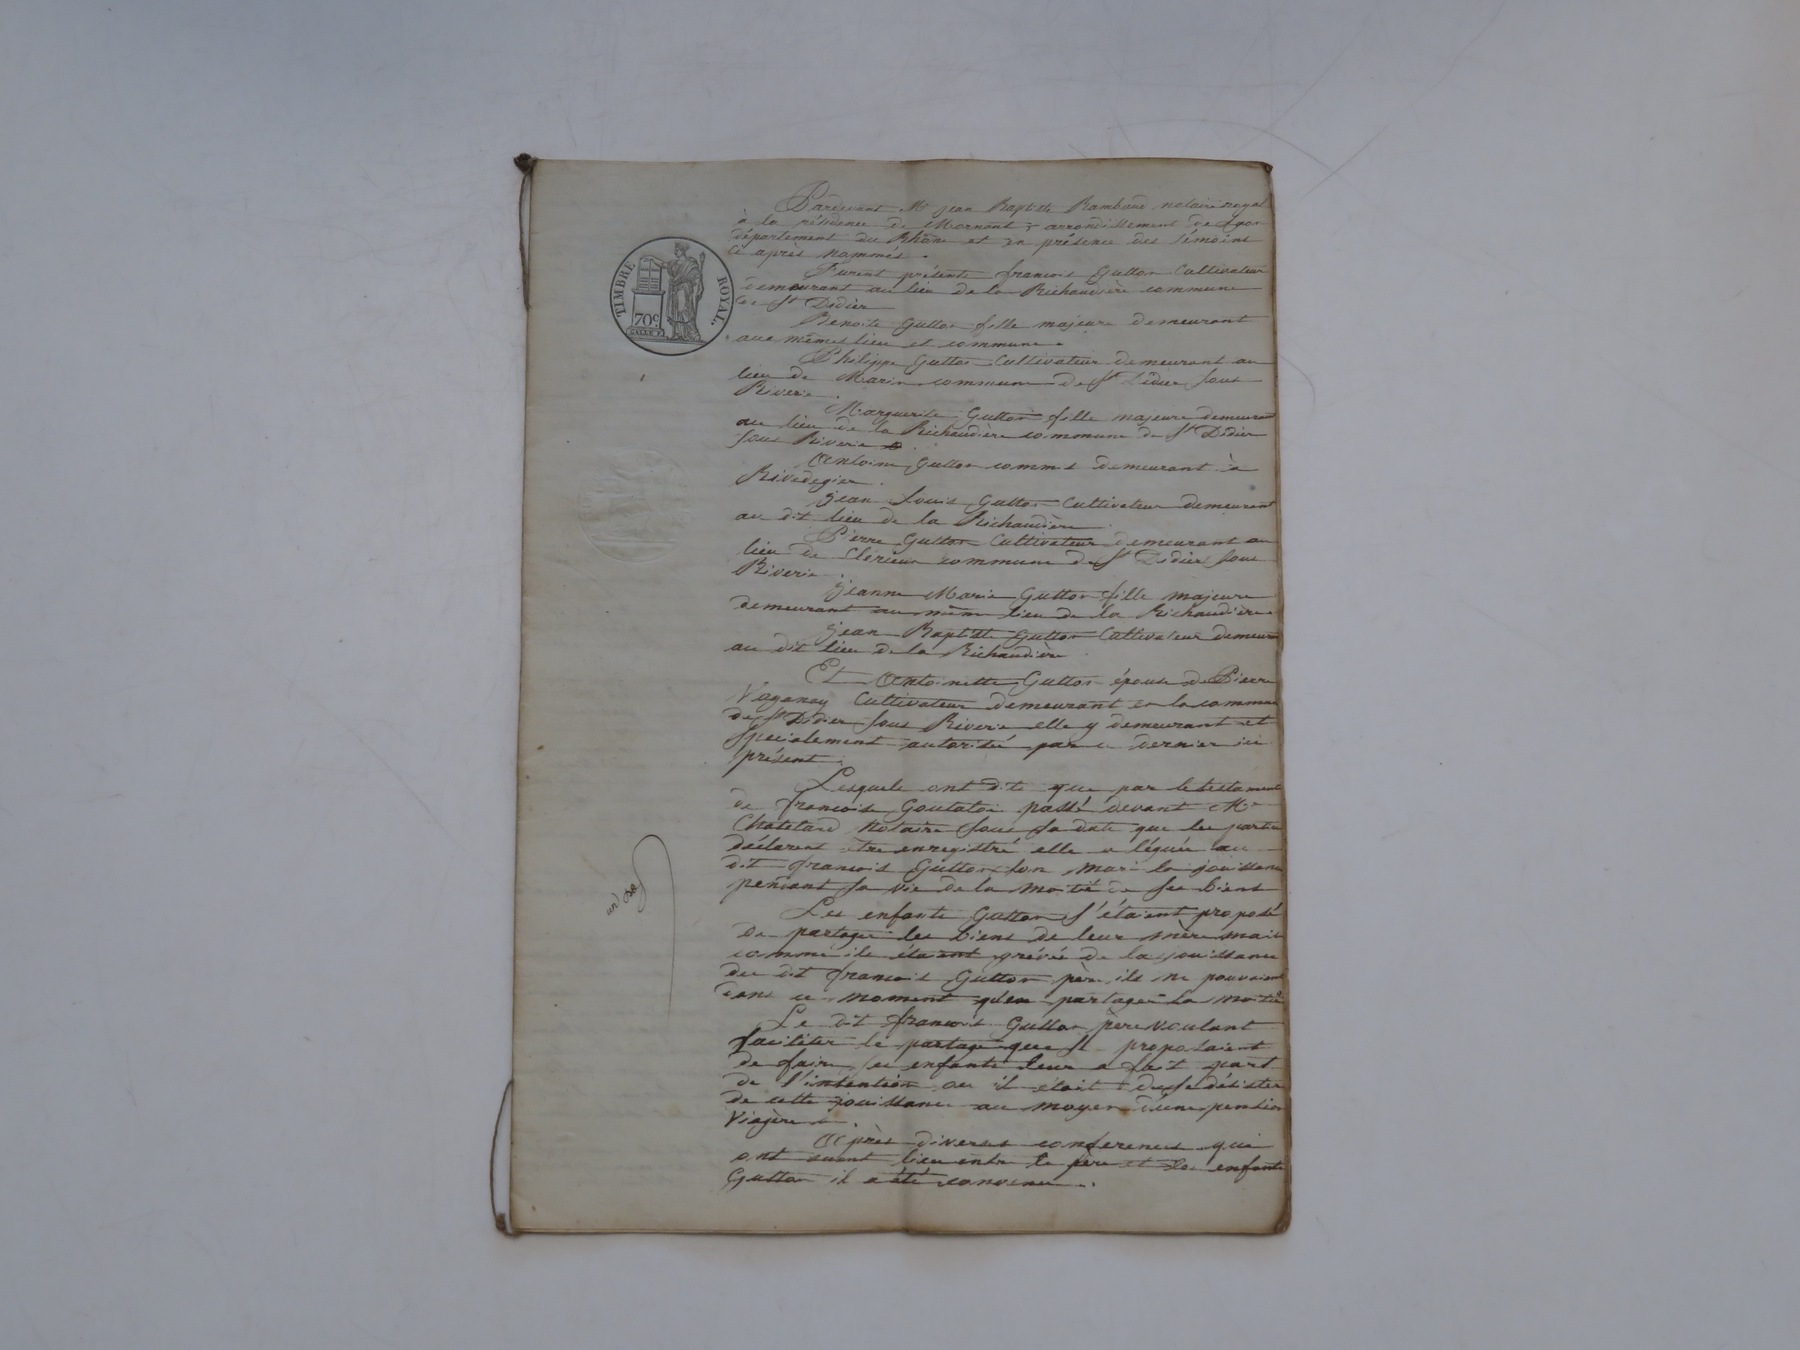 TIMBRE ROYAL.
70c
Pardevant Me Jean Baptiste Rambaud notaire royal
à la résidence de Mornant, arrondissement de Lyon
département du Rhône et en présence des témoins
ci après nommés.
Furent présents françois Gutton Cultivateur
demeurant au lieu de la Richaudière commune
de St Didier
Benoite Gutton fille majeure demeurant
aux mêmes lieu et commune.
Philippe Gutton Cultivateur demeurant au
lieu de Marin commune de St Didier sous
Riverie.
Marguerite Gutton fille majeure demeurant
au lieu de la Richaudière commune de St Didier
sous Riverie
Antoine Gutton commis demeurant à
Rivedegier.
Jean Louis Gutton Cultivateur demeurant
au dit lieu de la Richaudière.
Pierre Gutton Cultivateur demeurant au
lieu de commune de St Didier sous
Riverie.
Jeanne Marie Gutton fille majeure
demeurant au même lieu de la Richaudière.
Jean Baptiste Gutton Cultivateur demeurant
au dit lieu de la Richaudière.
Et Antoinette Gutton épouse de Pierre
Vaganay Cultivateur demeurant en la commune
de St Didier sous Riverie elle y demeurant et
specialement autorisée par ce dernier ici
présent.
Lesquels ont dit que par le testament
de françoise passé devant Me
Chatelard Notaire sous sa date que les parties
déclarent être enregistré elle a légué au
dit françois Gutton son mari la jouissance
pendant sa vie de la moitié de ses biens
Les enfants Gutton s'étaient proposé
de partager les biens de leur mère mais
comme ils étaient grévés de la jouissance
du dit françois Gutton père ils ne pouvaient
dans ce moment qu'en partager la moitié
Le dit françois Gutton père voulant
faciliter le partage que se proposaient
de faire ses enfants leur a fait part
de l'intention ou il était de se désister
de cette jouissance au moyen d'une pension
Viagère.
Après diverses conferences qui
ont eu lieu entre le père et les enfants
Gutton il a été convenu.